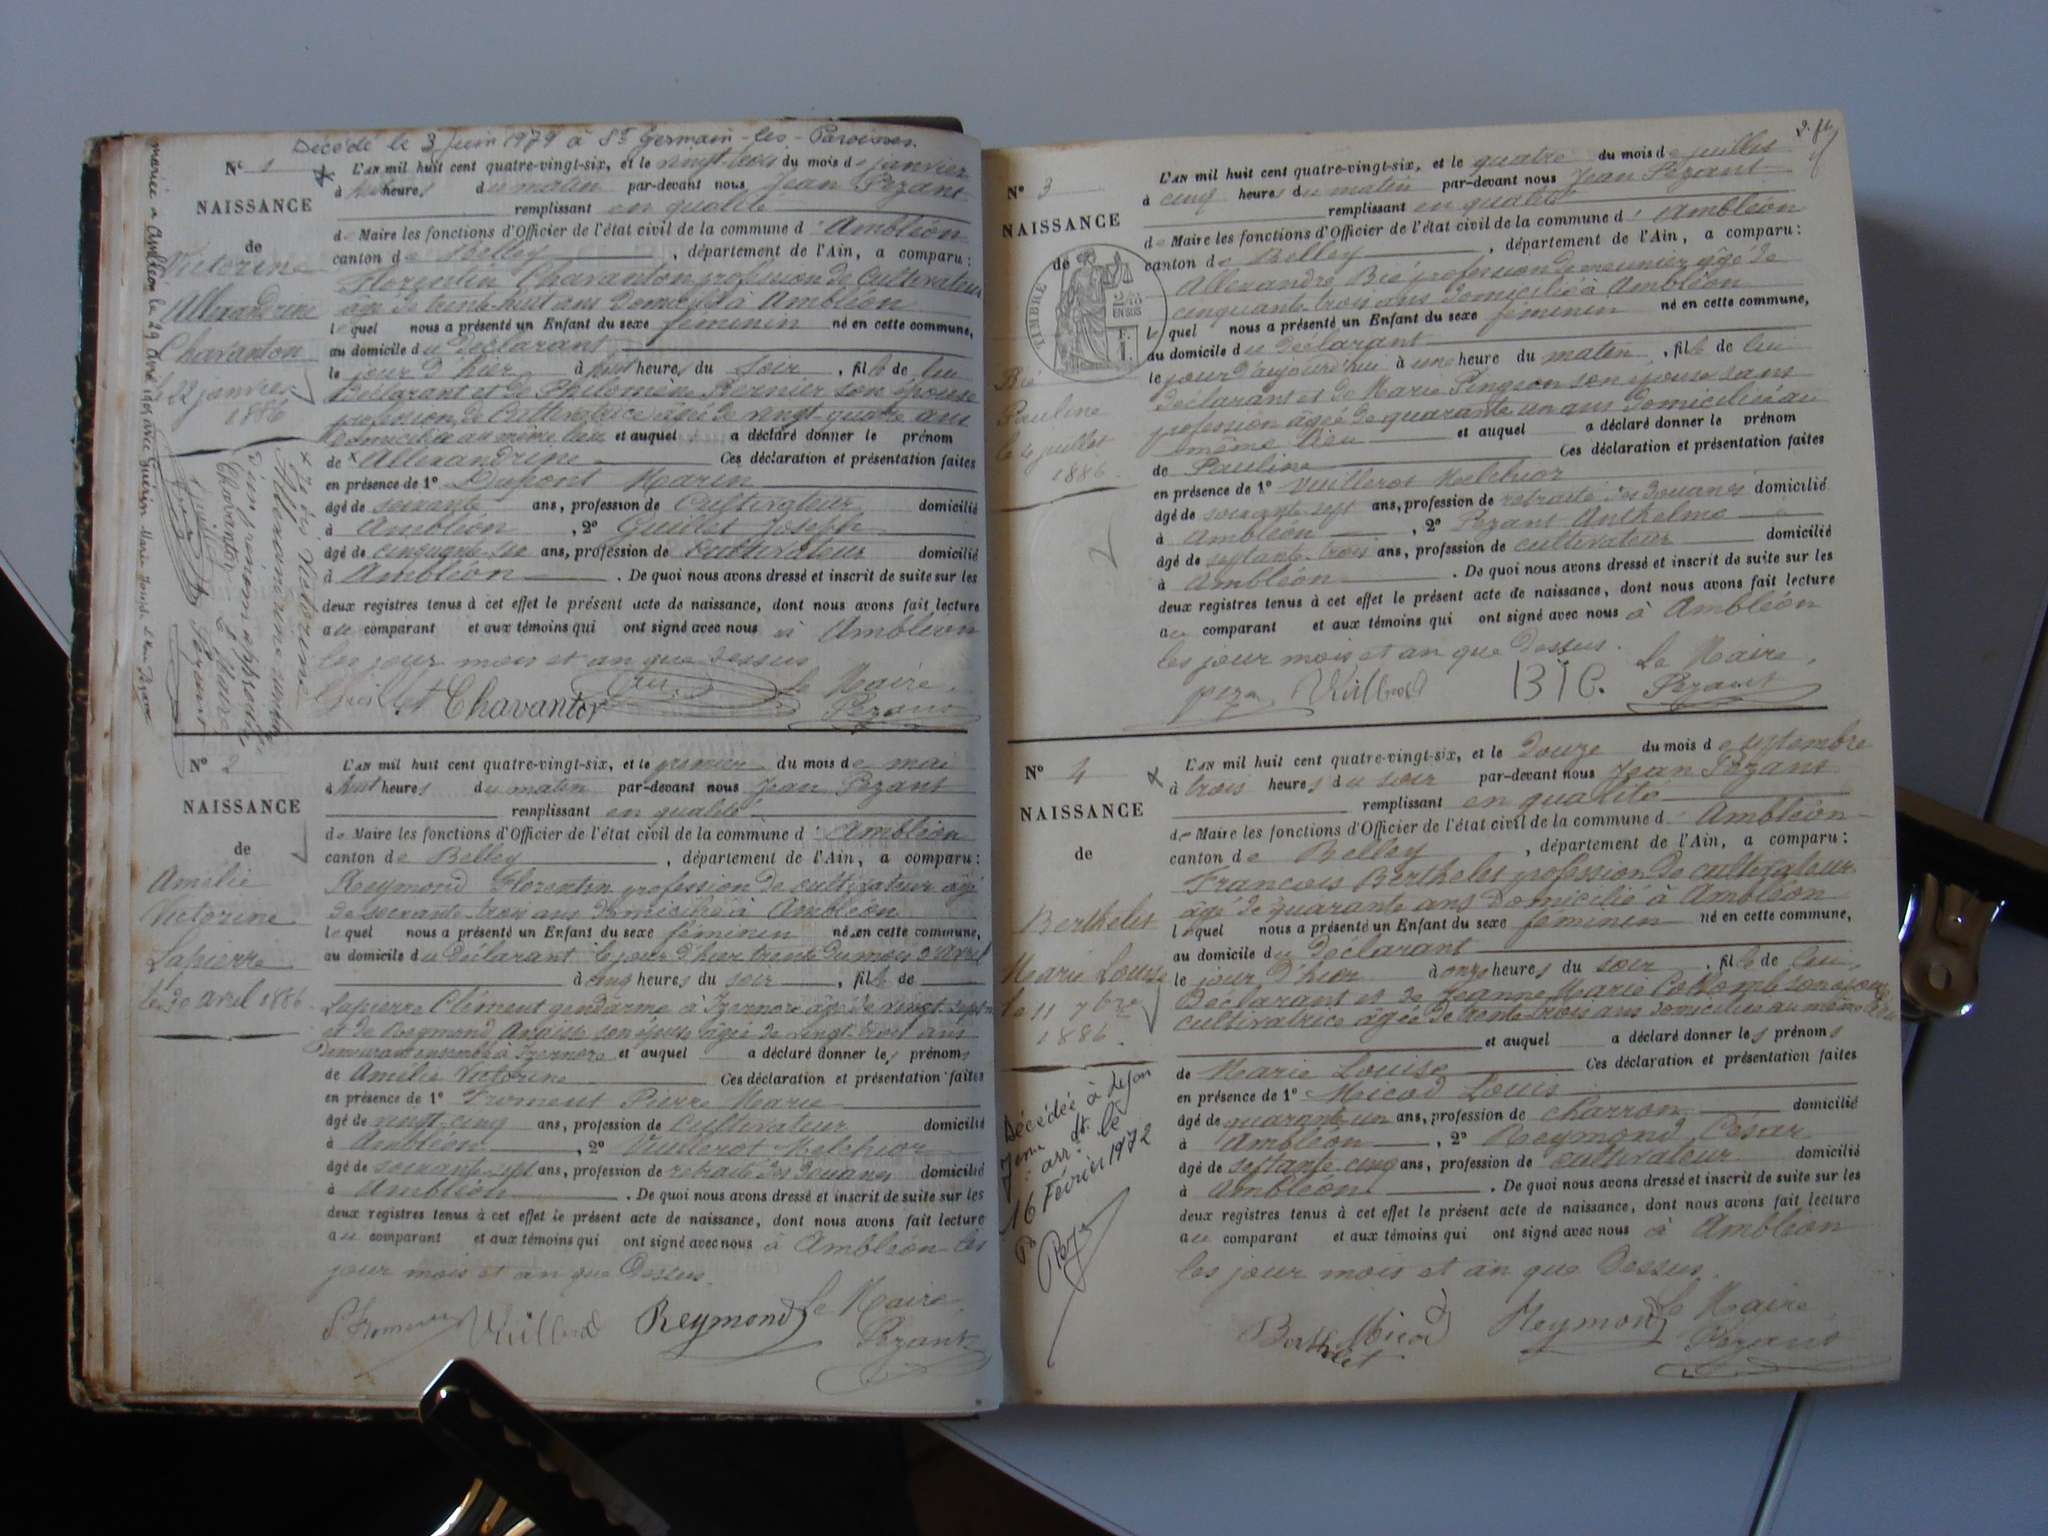 Décédé le 3 Juin 1979 à St Germain-les-Paroisses.
N° 1
NAISSANCE
de
Victorine
Allexandrine
Chavanton
le 22 janvier
1886
L'AN mil huit cent quatre-vingt-six, et le vingt trois du mois de janvier
à huit heures du matin par-devant nous Jean Pezant
remplissant en qualité
de Maire les fonctions d'Officier de l'état civil de la commune d'Ambléon
canton de Belley, département de l'Ain, a comparu:
Florentin Chavanton profession de cultivateur
âgé de trente-huit ans domicilié à Ambléon
lequel nous a présenté un Enfant du sexe féminin né en cette commune,
au domicile du déclarant
le jour d'hier à huit heures du soir, fille de lui
Déclarant et de Philomène Bernier son épouse
profession de Cultivatrice âgée de vingt-quatre ans
domiciliée au même lieu et auquel a déclaré donner le prénom
de x Allexandrine Ces déclaration et présentation faites
en présence de 1° Dupont Marin
âgé de soixante ans, profession de Cultivateur domicilié
à Ambléon, 2° Guillet Joseph
âgé de cinquante six ans, profession de Cultivateur domicilié
à Ambléon. De quoi nous avons dressé et inscrit de suite sur les
deux registres tenus à cet effet le présent acte de naissance, dont nous avons fait lecture
au comparant et aux témoins qui ont signé avec nous à Ambléon
les jour mois et an que dessus
Guillet Chavanton le Maire
Pezant
N° 2
NAISSANCE
de
Amélie
Victorine
Lapierre
le 30 avril 1886
L'AN mil huit cent quatre-vingt-six, et le premier du mois de mai
à huit heures du matin par-devant nous Jean Pezant
remplissant en qualité
de Maire les fonctions d'Officier de l'état civil de la commune d'Ambléon
canton de Belley, département de l'Ain, a comparu:
Reymond Florentin profession de cultivateur âgé
de soixante-trois ans domicilié à Ambléon
lequel nous a présenté un Enfant du sexe féminin né en cette commune,
au domicile du déclarant le jour d'hier trente du mois d'avril
à cinq heures du soir, fille de
Lapierre Clément gendarme à Izernore âgé de vingt-sept
et de Reymond son épouse âgée de vingt trois ans
Demeurant ensemble à Izernore et auquel a déclaré donner les prénoms
de Amélie Victorine Ces déclaration et présentation faites
en présence de 1° Froment Pierre Marie
âgé de vingt cinq ans, profession de Cultivateur domicilié
à Ambléon, 2° Vuillerot Melchior
âgé de soixante sept ans, profession de retraité des douanes domicilié
à Ambléon. De quoi nous avons dressé et inscrit de suite sur les
deux registres tenus à cet effet le présent acte de naissance, dont nous avons fait lecture
au comparant et aux témoins qui ont signé avec nous à Ambléon les
jour mois et an que Dessus.
Reymond le Maire
Pezant
N° 3
NAISSANCE
de
TIMBRE
Bié
Pauline
le 4 juillet
1886
L'AN mil huit cent quatre-vingt-six, et le quatre du mois de juillet
à cinq heures du matin par-devant nous Jean Pezant
remplissant en qualité
de Maire les fonctions d'Officier de l'état civil de la commune d'Ambléon
canton de Belley, département de l'Ain, a comparu:
Allexandre Bié profession de meunier âgé de
cinquante-trois ans domicilié à Ambléon
lequel nous a présenté un Enfant du sexe féminin né en cette commune,
au domicile du déclarant
le jour d'aujourd'hui à une heure du matin, fille de lui
déclarant et de Marie son épouse sans
profession âgée de quarante un ans domiciliée au
même lieu et auquel a déclaré donner le prénom
de Pauline Ces déclaration et présentation faites
en présence de 1° Vuillerot Melchior
âgé de soixante sept ans, profession de retraité des douanes domicilié
à Ambléon, 2° Pezant Anthelme
âgé de septante-trois ans, profession de cultivateur domicilié
à Ambléon. De quoi nous avons dressé et inscrit de suite sur les
deux registres tenus à cet effet le présent acte de naissance, dont nous avons fait lecture
au comparant et aux témoins qui ont signé avec nous à Ambléon
les jour mois et an que Dessus.
BIE. Le Maire,
Pezant
N° 4
NAISSANCE
de
Berthelet
Marie Louise
le 11 7bre
1886.
Décédée à Lyon
7ème arr. dt. le
16 Février 1972
L'AN mil huit cent quatre-vingt-six, et le douze du mois de septembre
à trois heures du soir par-devant nous Jean Pezant
remplissant en qualité
de Maire les fonctions d'Officier de l'état civil de la commune d'Ambléon
canton de Belley, département de l'Ain, a comparu:
François Berthelet profession de cultivateur
âgé de quarante ans Domicilié à Ambléon
lequel nous a présenté un Enfant du sexe féminin né en cette commune,
au domicile du déclarant
le jour d'hier à onze heures du soir, fille de lui,
Déclarant et de Jeanne Marie Collomb son épouse
cultivatrice âgée de trente-trois ans domiciliée au même lieu
et auquel a déclaré donner les prénoms
de Marie Louise Ces déclaration et présentation faites
en présence de 1° Micod Louis
âgé de quarante un ans, profession de Charron domicilié
à Ambléon, 2° Reymond César
âgé de septante cinq ans, profession de Cultivateur domicilié
à Ambléon. De quoi nous avons dressé et inscrit de suite sur les
deux registres tenus à cet effet le présent acte de naissance, dont nous avons fait lecture
au comparant et aux témoins qui ont signé avec nous à Ambléon
les jour mois et an que Dessus.
Berthelet Micod Reymond Le Maire
Pezant